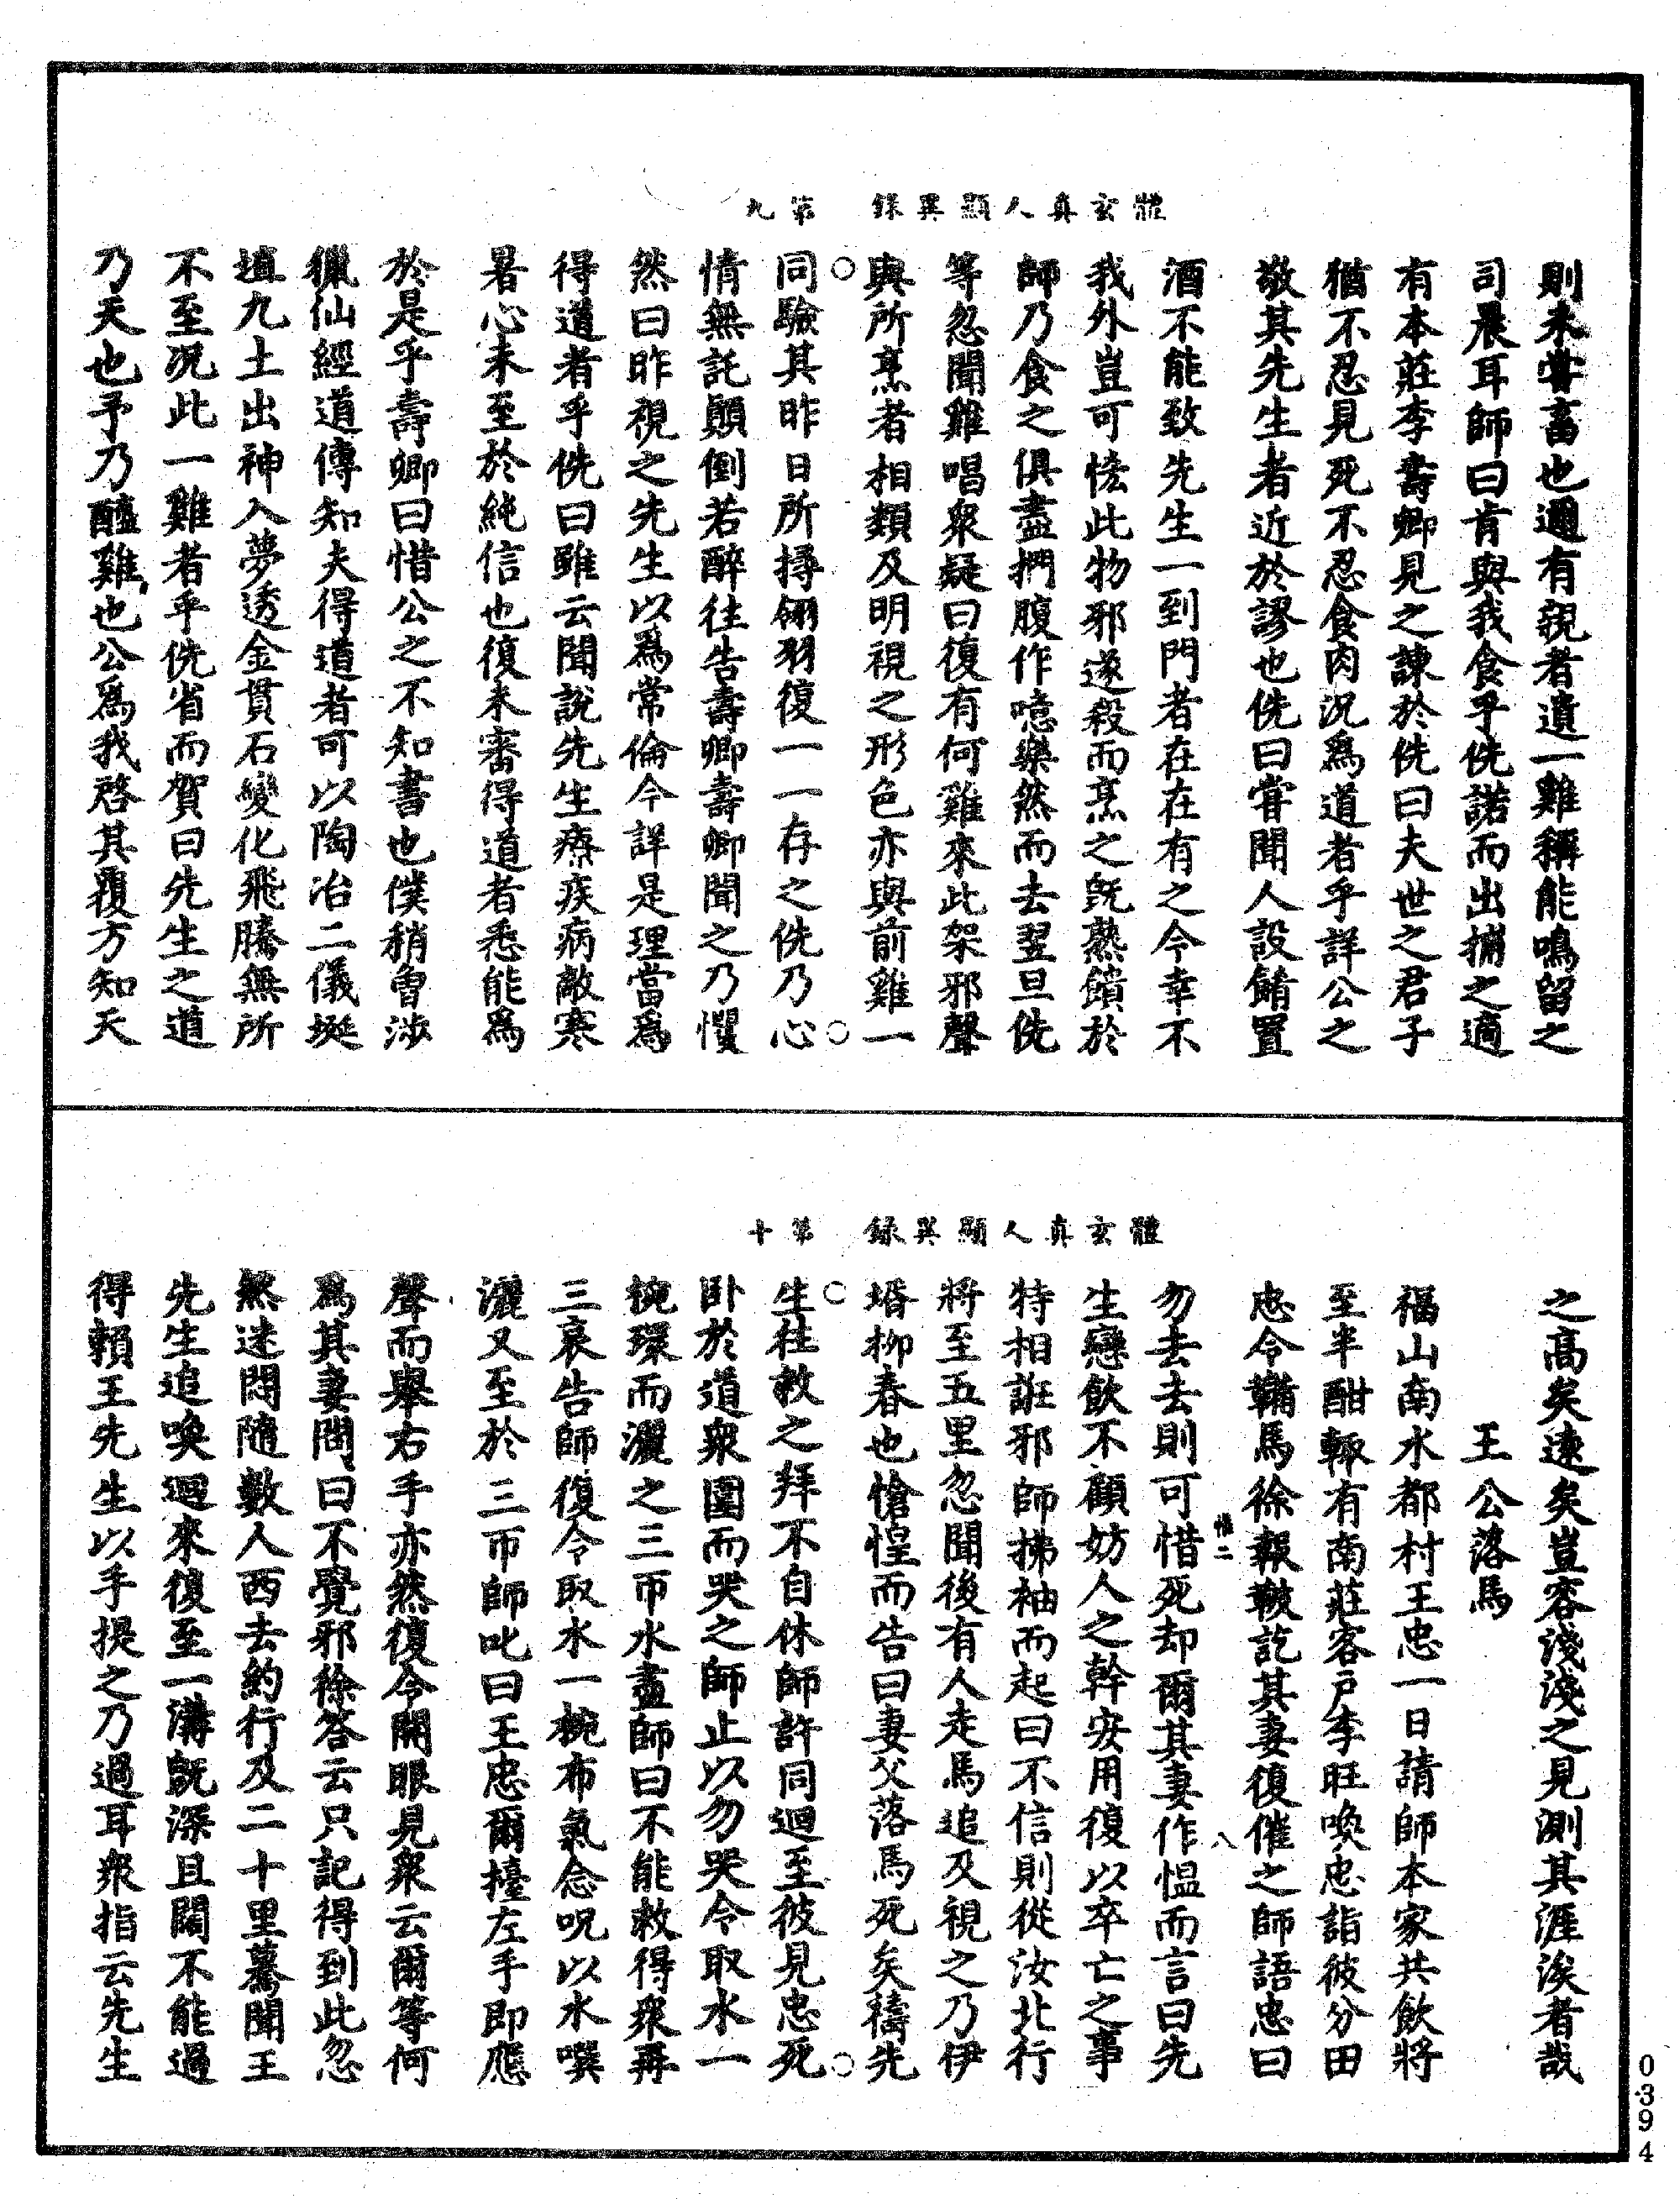 體玄真人顯異錄　第九
則未嘗畜也邇有親者遺一雞稱能鳴留之
司晨耳師曰肯與我食乎侁諾而出捕之適
有本莊李壽卿見之諫於侁曰夫世之君子
猶不忍見死不忍食肉況爲道者乎詳公之
敬其先生者近於謬也侁曰甞聞人設餚置
酒不能致先生一到門者在在有之今幸不
我外豈可恡此物邪遂殺而烹之旣熟饋於
師乃食之俱盡捫腹作噫樂然而去翌旦侁
等忽聞雞唱衆疑曰復有何雞來此架邪聲
與所烹者相類及明視之形色亦與前雞一
同驗其昨日所撏翎羽復一一存之侁乃心
情無託顛倒若醉往告壽卿壽卿聞之乃懼
然曰昨視之先生以爲常倫今詳是理當爲
得道者乎侁曰雖云聞說先生療疾病敵寒
暑心未至於純信也復未審得道者悉能爲
於是乎壽卿曰惜公之不知書也僕稍曾涉
獵仙經道傳知夫得道者可以陶冶二儀埏
埴九土出神入夢透金貫石變化飛騰無所
不至況此一雞者乎侁省而賀曰先生之道
乃天也予乃醯雞也公爲我啓其覆方知天
體玄真人顯異錄　第十
之高矣遠矣豈容淺淺之見測其涯涘者哉
王公落馬
福山南水都村王忠一日請師本家共飲將
至半酣輙有南莊客戶李旺喚忠詣彼分田
忠令鞴馬徐報鞍訖其妻復催之師語忠曰
惟二　八
勿去去則可惜死却爾其妻作愠而言曰先
生戀飲不顧妨人之幹安用復以卒亡之事
特相誑邪師拂袖而起曰不信則從汝北行
將至五里忽聞後有人走馬追及視之乃伊
壻柳春也愴惶而告曰妻父落馬死矣禱先
生往救之拜不自休師許同迴至彼見忠死
卧於道衆圍而哭之師止以勿哭令取水一
椀環而灑之三帀水盡師曰不能救得衆再
三哀告師復令取水一椀布氣念呪以水噀
灑又至於三帀師叱曰王忠爾擡左手即應
聲而舉右手亦然復令開眼見衆云爾等何
爲其妻問曰不覺邪徐答云只記得到此忽
然迷悶隨數人西去約行及二十里驀聞王
先生追喚迴來復至一溝旣深且闊不能過
得賴王先生以手提之乃過耳衆指云先生
0394